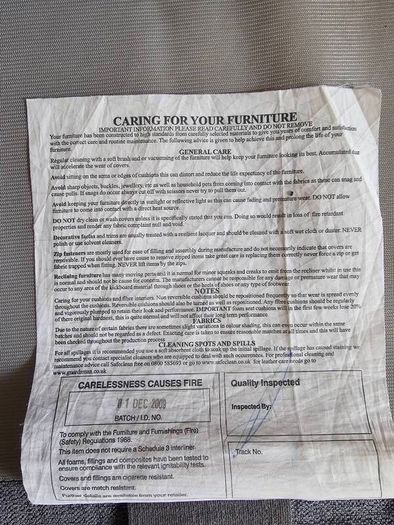 CARING FOR YOUR FURNITURE
IMPORTANT INFORMATION PLEASE READ CAREFULLY AND DO NOT REMOVE
Your furniture has been constructed to high standards from carefully selected materials to give you years of comfort and satisfaction
with the correct care and routine maintenance. The following advice is given to help achieve this and prolong the life of your
furniture.
GENERAL CARE
Regular cleaning with a soft brush and or vacuuming of the furniture will help keep your furniture looking its best. Accumulated dust
will accelerate the wear of covers.
Avoid sitting on the arms or edges of cushions this can distort and reduce the life expectancy of the furniture.
Avoid sharp objects, buckles, jewellery, etc as well as household pets from coming into contact with the fabrics as these can snag and
cause pulls. If snags do occur always cut off with scissors never try to pull them out.
Avoid keeping your furniture directly in sunlight or reflective light as this can cause fading and premature wear. DO NOT allow
furniture to come into contact with a direct heat source.
DO NOT dry clean or wash covers unless it is specifically stated that you can. Doing so would result in loss of fire retardant
properties and render any fabric complaint null and void.
Decorative facias and trims are usually treated with a resilient lacquer and should be cleaned with a soft wet cloth or duster. NEVER
polish or use solvent cleaners.
Zip fasteners are mostly used for ease of filling and assembly during manufacture and do not necessarily indicate that covers are
removable. If you should ever have cause to remove zipped items take great care in replacing them correctly never force a zip or get
fabric trapped when fitting. NEVER lift items by the zips.
Reclining furniture has many moving parts and it is normal for minor squeaks and creaks to emit from the recliner whilst in use this
is normal and should not be cause for concern. The manufacturers cannot be responsible for any damage or premature wear that may
occur to any area of the kickboard material through shoes or the heels of shoes or any type of footwear.
NOTES
Caring for your cushions and fibre interiors. Non reversible cushions should be repositioned frequently so that wear is spread evenly
throughout the cushions. Reversible cushions should also be turned as well as repositioned. Any fibre cushions should be regularly
and vigorously plumped to retain their look and performance. IMPORTANT foam seat cushions with in the first few weeks lose 20%
of there original hardness, this is quite normal and will not affect their long term performance.
FABRICS
Due to the nature of certain fabrics there are sometimes slight variations in colour shading, this can even occur within the same
batches and should not be regarded as a defect. Exacting care is taken to ensure reasonable matches at all times and this will have
been checked throughout the production process
CLEANING SPOTS AND SPILLS
For all spillages it is recommended you use a soft absorbent cloth to soak up the initial spillage. If the spillage has caused staining we
recommend you contact specialist cleaners who are equipped to deal with such occurrences. For professional cleaning and
maintenance advice call Safeclean free on 0800 585693 or go to www.safeclean.co.uk for leather care needs go to
www.guardsman.co.uk
CARELESSNESS CAUSES FIRE
01 DEC 2009
BATCH / I.D. NO.
To comply with the Furniture and Furnishings (Fire)
(Safety) Regulations 1988.
This item does not require a Schedule 3 interliner.
All foams, fillings and composites have been tested to
ensure compliance with the relevant ignitability tests.
Covers and fillings are cigarette resistant.
Covers are match resistant.
Further details are available from your retailer.
Quality Inspected
Inspected By:
Track No.